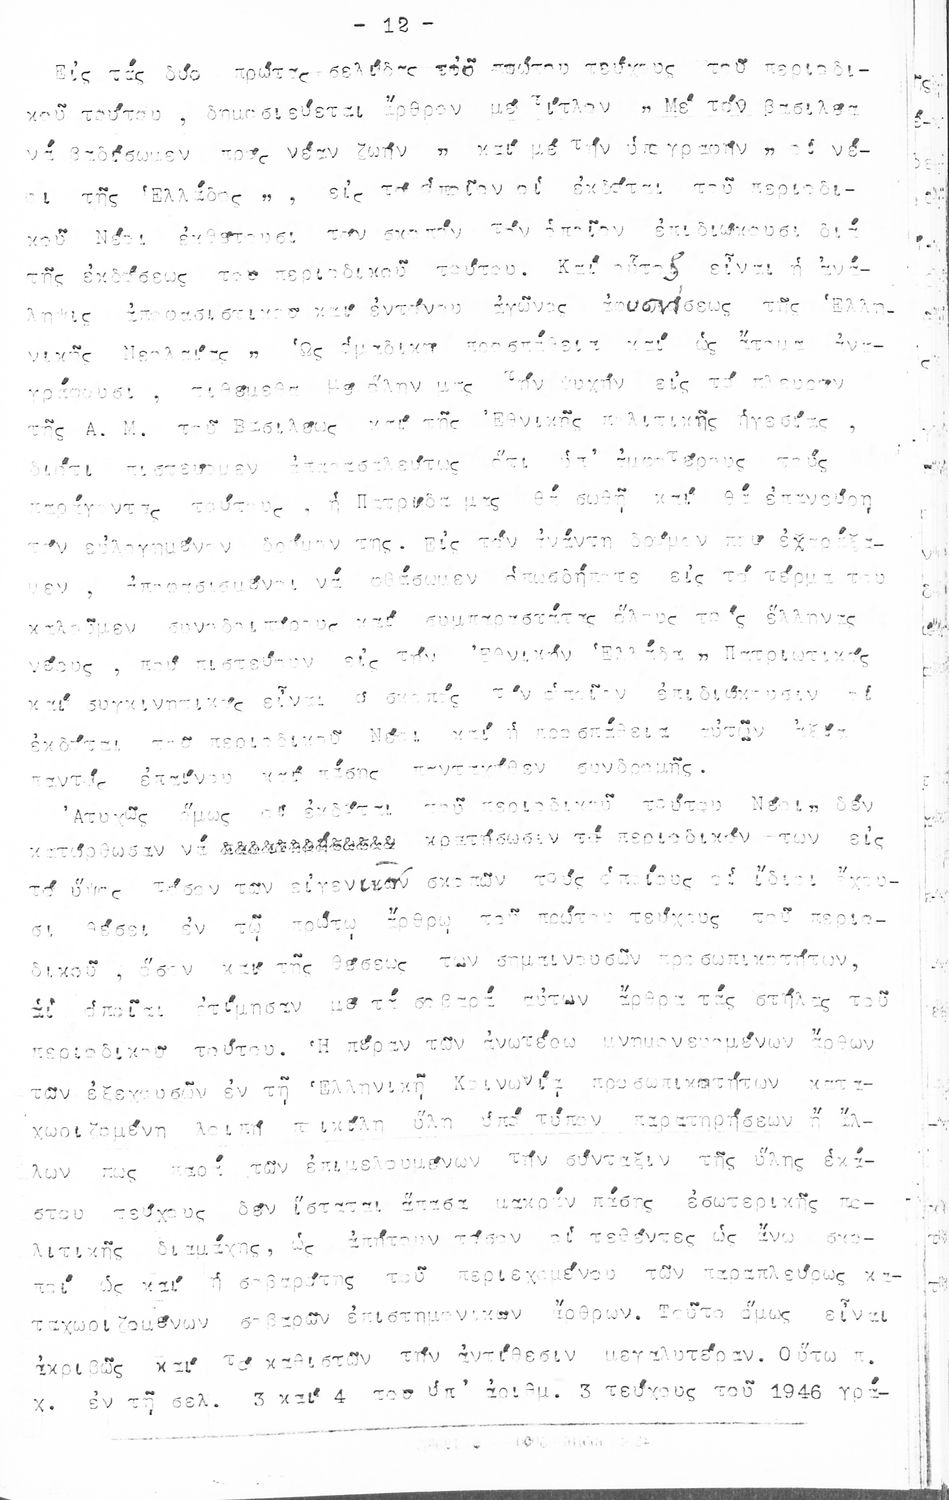 - 12 -
Εἰς τάς δύο πρώτας σελίδας τοῦ πρώτου τεύχους τοῦ περιοδι-
κοῦ τούτου , δημοσιεύεται ἄρθρον μέ τίτλον " Μέ τόν βασιλέα
νά βαδίσωμεν πρός νέαν ζωήν " καί μέ τήν ὑπογραφήν " οἱ νέ-
οι τῆς Ἑλλάδος " , εἰς τό ὁποῖον οἱ ἐκδόται τοῦ περιοδι-
κοῦ Νέοι ἐκθέτουσι τόν σκοπόν τόν ὁποῖον ἐπιδιώκουσι διά
τῆς ἐκδόσεως του περιοδικοῦ τούτου. Καί οὗτος εἶναι ἡ ἀνά-
ληψις ἀποφασιστικοῦ καί ἐντόνου ἀγῶνος ἀφυπνίσεως τῆς Ἑλλη-
νικῆς Νεολαίας " Ὡς ὁμαδική προσπάθεια καί ὡς ἄτομα ἀνα-
γράφουσι , τιθέμεθα μέ ὅλην μας τήν ψυχήν εἰς τό πλευρόν
τῆς Α. Μ. τοῦ Βασιλέως καί τῆς Ἐθνικῆς πολιτικῆς ἡγεσίας ,
διότι πιστεύομεν ἀπαρασαλεύτως ὅτι ὑπ' ἀμφοτέρους τούς
παράγοντας τούτους , ἡ Πατρίδα μας θά σωθῆ καί θά ἐπανεύρη
τόν εὐλογημένον δρόμον της. Εἰς τόν ἀνάντη δρόμον πού ἐχαράξα-
μεν , ἀποφασισμένοι νά φθάσωμεν ὁπωσδήποτε εἰς τό τέρμα του
καλοῦμεν συνοδοιπόρους καί συμπαραστάτας ὅλους τούς ἕλληνας
νέους , πού πιστεύουν εἰς τήν Ἐθνικήν Ἑλλάδα " Πατριωτικός
καί συγκινητικός εἶναι ὁ σκοπός τόν ὁποῖον ἐπιδιώκουσιν οἱ
ἐκδόται του περιοδικοῦ Νέοι καί ἡ προσπάθεια αὐτῶν ἀξία
παντός ἐπαίνου καί πάσης πανταχόθεν συνδρομῆς.
Ἀτυχῶς ὅμως οἱ ἐκδόται τοῦ περιοδικοῦ τούτου Νέοι" δέν
κατώρθωσαν νά κρατήσωσιν τό περιοδικόν των εἰς
τό ὕψος τόσον των εὐγενικῶν σκοπῶν τούς ὁποίους οἱ ἴδιοι ἔχου-
σι θέσει ἐν τῷ πρώτῳ ἄρθρῳ τοῦ πρώτου τεύχους τοῦ περιο-
δικοῦ , ὅσον καί τῆς θέσεως των σημαινουσῶν προσωπικοτήτων,
αἱ ὁποῖαι ἐτίμησαν μέ τά σοβαρά αὐτων ἄρθρα τάς στήλας τοῦ
περιοδικοῦ τούτου. Ἡ πέραν τῶν ἀνωτέρω μνημονευομένων ἄρθων
τῶν ἐξεχουσῶν ἐν τῇ Ἑλληνικῇ Κοινωνίᾳ προσωπικοτήτων κατα-
χωριζομένη λοιπή ποικίλη ὕλη ὑπό τύπον παρατηρήσεων ἤ ἄλ-
λων πως παρά τῶν ἐπιμελουμένων τήν σύνταξιν τῆς ὕλης ἑκά-
στου τεύχους δέν ἵσταται ἅπασα μακράν πάσης ἐσωτερικῆς πο-
λιτικῆς διαμάχης, ὡς ἀπῄτουν τόσον οἱ τεθέντες ὡς ἄνω σκο-
ποί ὡς καί ἡ σοβαρότης τοῦ περιεχομένου τῶν παραπλεύρως κα-
ταχωριζομένων σοβαρῶν ἐπιστημονικῶν ἄρθρων. Τοῦτο ὅμως εἶναι
ἀκριβῶς καί τό καθιστῶν τήν ἀντίθεσιν μεγαλυτέραν. Οὕτω π.
χ. ἐν τῇ σελ. 3 καί 4 του ὑπ' ἀριθμ. 3 τεύχους τοῦ 1946 γρά-